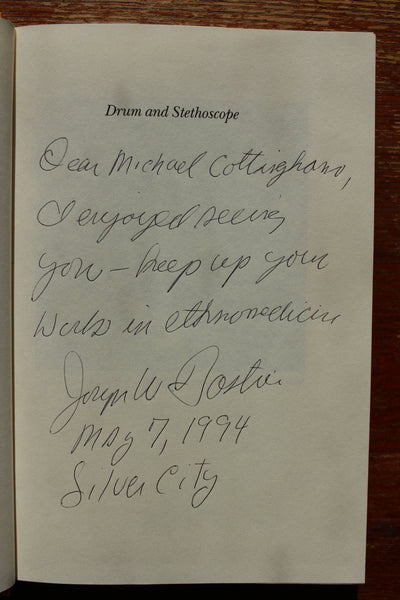 Drum and Stethoscope
Dear Michael Cottingham,
I enjoyed seeing
you – keep up your
work in ethnomedicine
Joseph W Bastien
May 7, 1994
Silver City